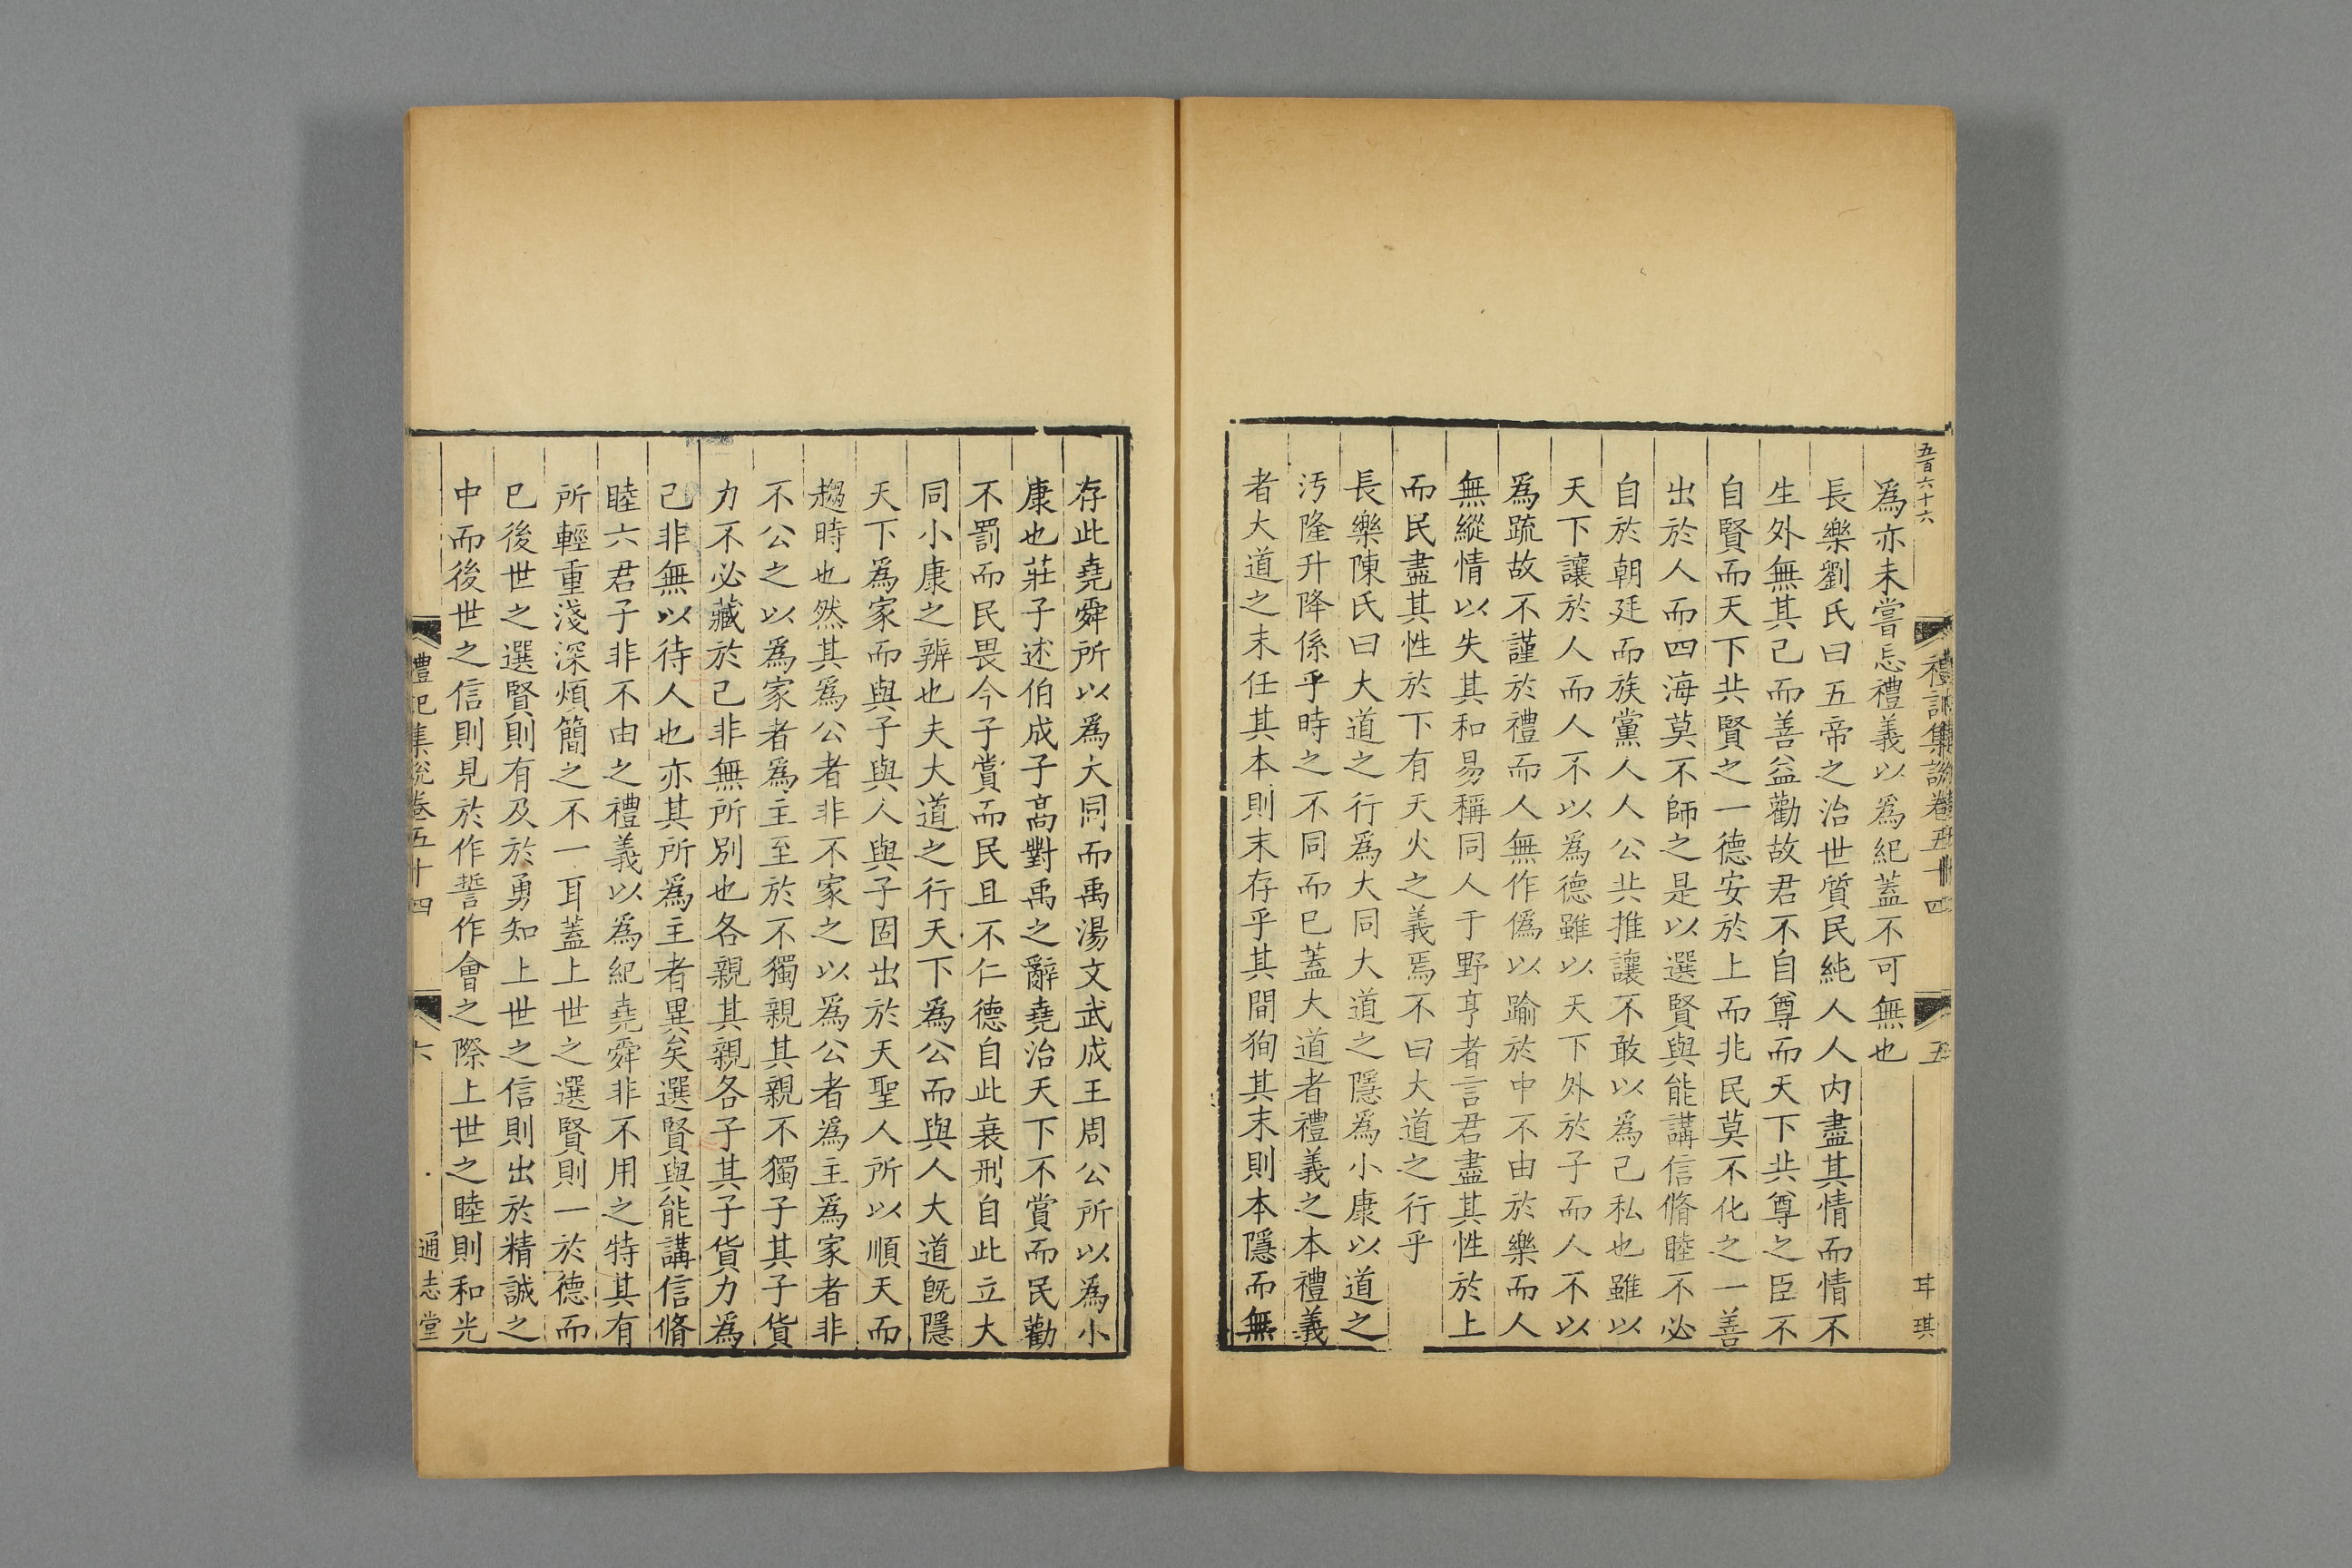 五百六十六
禮記集說卷五十四
五
耳琪
爲亦未嘗忘禮義以爲紀蓋不可無也
長樂劉氏曰五帝之治世質民純人人內盡其情而情不
生外無其己而善益勸故君不自尊而天下共尊之臣不
自賢而天下共賢之一德安於上而兆民莫不化之一善
出於人而四海莫不師之是以選賢與能講信脩睦不必
自於朝廷而族黨人人公共推讓不敢以爲己私也雖以
天下讓於人而人不以爲德雖以天下外於子而人不以
爲疏故不謹於禮而人無作僞以踰於中不由於樂而人
無縱情以失其和易稱同人于野亨者言君盡其性於上
而民盡其性於下有天火之義焉不曰大道之行乎
長樂陳氏曰大道之行爲大同大道之隱爲小康以道之
汚隆升降係乎時之不同而已蓋大道者禮義之本禮義
者大道之末任其本則末存乎其間狥其末則本隱而無
存此堯舜所以爲大同而禹湯文武成王周公所以爲小
康也莊子述伯成子高對禹之辭堯治天下不賞而民勸
不罰而民畏今子賞而民且不仁德自此衰刑自此立大
同小康之辨也夫大道之行天下爲公而與人大道旣隱
天下爲家而與子與人與子固出於天聖人所以順天而
趨時也然其爲公者非不家之以爲公者爲主爲家者非
不公之以爲家者爲主至於不獨親其親不獨子其子貨
力不必藏於己非無所別也各親其親各子其子貨力爲
己非無以待人也亦其所爲主者異矣選賢與能講信脩
睦六君子非不由之禮義以爲紀堯舜非不用之特其有
所輕重淺深煩簡之不一耳蓋上世之選賢則一於德而
已後世之選賢則有及於勇知上世之信則出於精誠之
中而後世之信則見於作誓作會之際上世之睦則和光
禮記集說卷五十四
六
通志堂